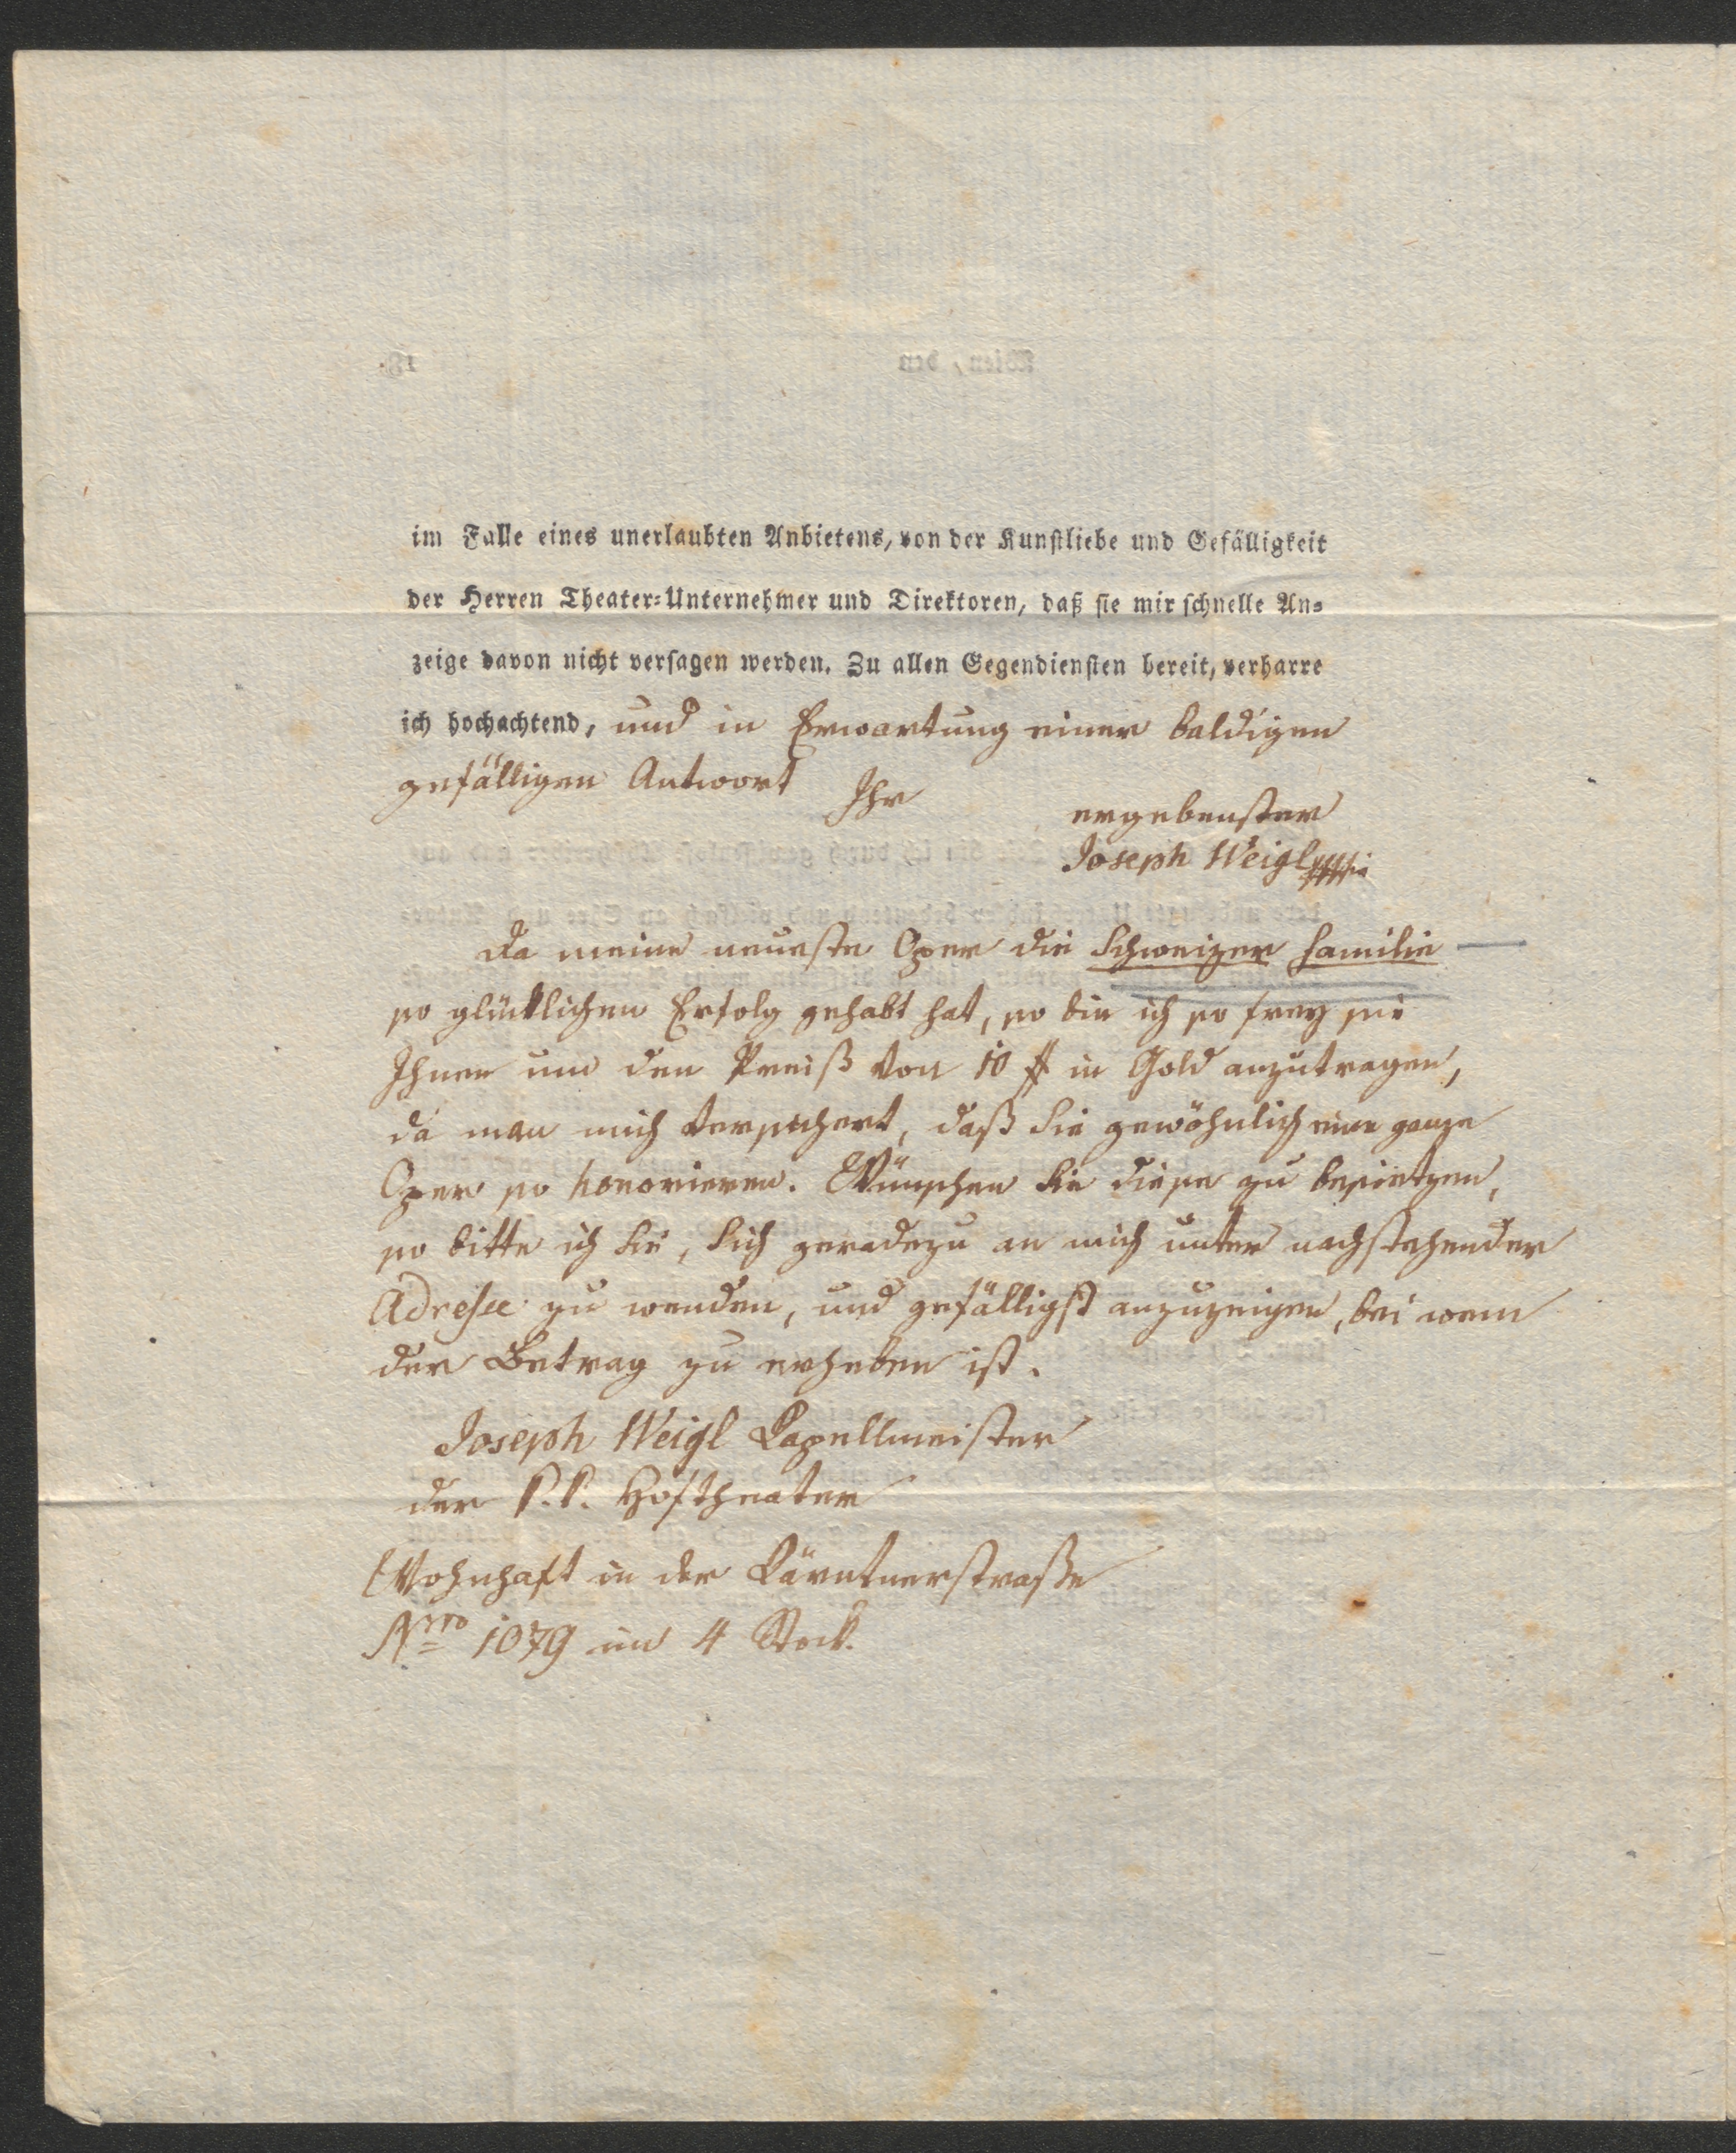 im Falle eines unerlaubten Anbietens, von der Kunstliebe und Gefälligkeit
der Herren Theater-Unternehmer und Direktoren, daß sie mir schnelle An-
zeige davon nicht versagen werden. Zu allen Gegendiensten bereit, verharre
ich hochachtend, und in Erwartung einer baldigen
gefälligen Antwort Ihr
ergebenster
Joseph Weigl
Da meine neueste Oper die Schweizer Familie
so glücklichen Erfolg gehabt hat, so bin ich so frey sie
Ihnen um den Preiß von 10 # in Gold anzutragen,
da man mich versichert, daß Sie gewöhnlich eine ganze
Oper so honorieren. Wünschen Sie diese zu besietzen,
so bitte ich Sie, Sich geradezu an mich unter nachstehender
Adresse zu wenden, und gefälligst anzuzeigen, bei wem
der Betrag zu erheben ist.
Joseph Weigl Kapellmeister
der k. k. Hoftheater
Wohnhaft in der Kärntnerstraße
Nro 1079 im 4 Stock.
Wien, den 18